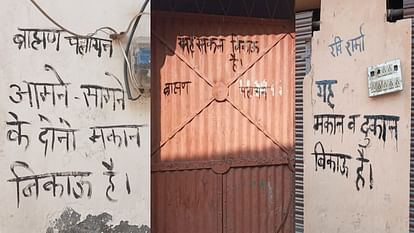 ब्राह्मण पलायन
आमने-सामने
के दोनो मकान
बिकाऊ है।
यह मकान बिकाऊ
है।
ब्राह्मण
रवि शर्मा
यह
मकान व दुकान
बिकाऊ है।